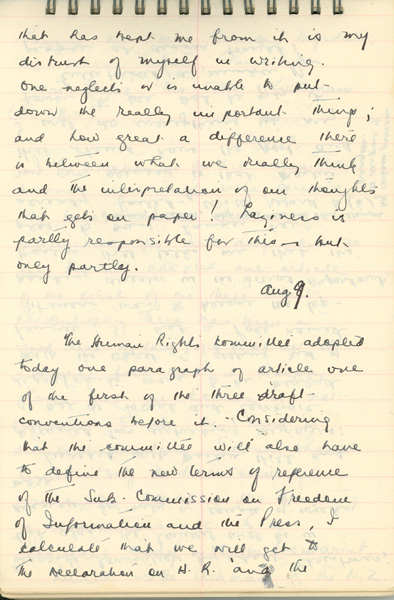 that has kept me from it is my
distrust of myself in writing.
One neglects or is unable to put
down the really important things;
and how great a difference there
is between what we really think
and the interpretation of our thoughts
that gets on paper! Laziness is
partly responsible for this - but
only partly.
Aug 9.
The Human Rights Committee adopted
today one paragraph of article one
of the first of the three draft
conventions before it. - Considering
that the committee will also have
to define the new terms of reference
of the Sub-Commission on Freedom
of Information and the Press, I
calculate that we will get to
the Declaration on H.R. and the